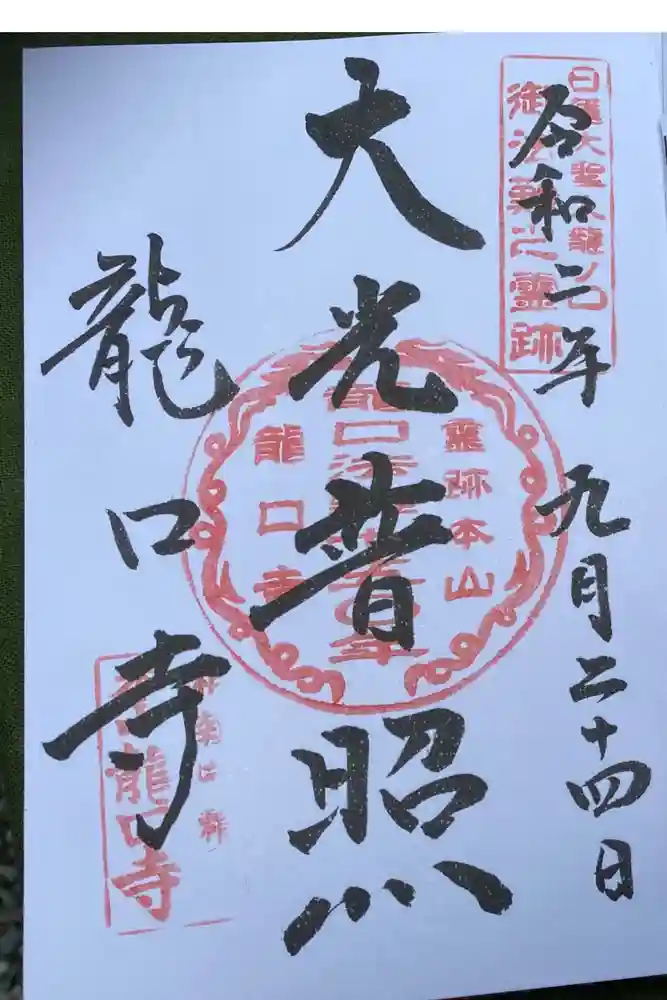 令和二年九月二十四日
日蓮大聖人龍ノ口
御法難之霊跡
大光普照
霊跡本山
龍口寺
龍口寺
龍口寺